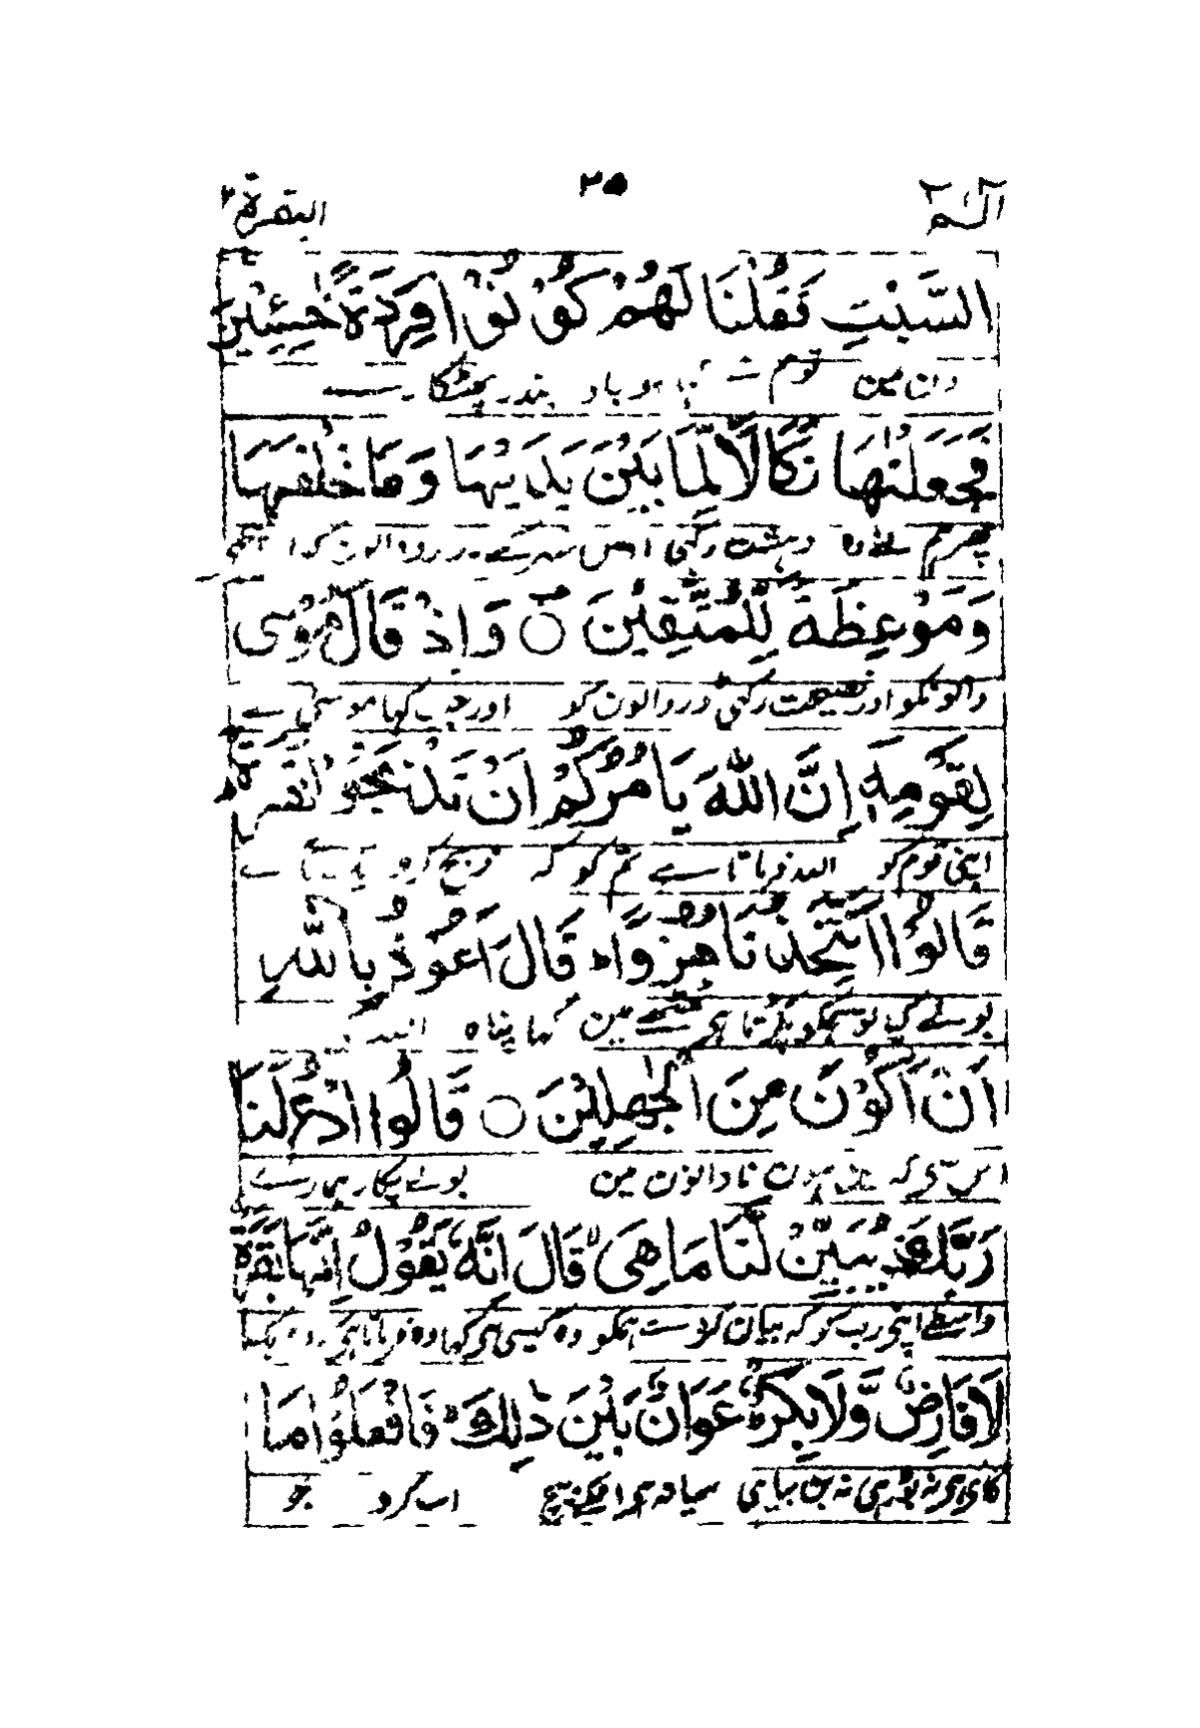 آلٓمّٓ ۳۵ البقرة ۲
السَّبْتِ فَقُلْنَا لَهُمْ كُوْنُوْا قِرَدَةً خٰسِئِيْنَ
دن مین بندر پھٹکارے
فَجَعَلْنٰهَا نَكَالًا لِّمَا بَيْنَ يَدَيْهَا وَمَا خَلْفَهَا
پھر ہم نے وہ دہشت رکھی اس شہر کے
وَمَوْعِظَةً لِّلْمُتَّقِيْنَ ○ وَاِذْ قَالَ مُوْسٰى
والونکو اور نصیحت رکھی ڈر والون کو اور جب کہا موسیٰ نے
لِقَوْمِهٖٓ اِنَّ اللّٰهَ يَاْمُرُكُمْ اَنْ تَذْبَحُوْا بَقَرَةً
اپنی قوم کو اللہ فرماتا ہے تم کو کہ ذبح کرو
قَالُوْٓا اَتَتَّخِذُنَا هُزُوًا ؕ قَالَ اَعُوْذُ بِاللّٰهِ
بولے کیا تو ہمکو پکڑتا ہی ٹھٹھے مین کہا پناہ اللہ
اَنْ اَكُوْنَ مِنَ الْجٰهِلِيْنَ ○ قَالُوا ادْعُ لَنَا
اس سی کہ مین ہون نادانون مین بولے پکار ہمارے
رَبَّكَ يُبَيِّنْ لَّنَا مَا هِىَ ؕ قَالَ اِنَّهٗ يَقُوْلُ اِنَّهَا بَقَرَةٌ
واسطے اپنی رب کو کہ بیان کر دے ہمکو وہ کیسی ہی کہا وہ فرماتا ہی وہ ایک
لَّا فَارِضٌ وَّلَا بِكْرٌ ؕ عَوَانٌۢ بَيْنَ ذٰلِكَ ؕ فَافْعَلُوْا مَا
گای ہی نہ بوڑھی نہ بن بیاہی میانہ ہی انکے بیچ اب کرو جو